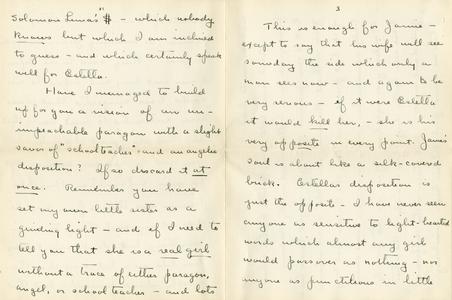 Solomon Luna's $ - which nobody
knows but which I am inclined
to guess - and which certainly speak
well for Estella.
Have I managed to build
up for you a vision of an un-
impeachable paragon with a slight
savor of "school teacher" and an angelic
disposition? If so discard it at
once. Remember you have
set my own little sister as a
guiding light - and if I need to
tell you that she is a real girl
without a trace of either paragon,
angel, or school teacher - and lots
3
This is enough for Jamie -
except to say that his wife will see
someday the side which only a
man sees now - and again to be
very serious - if it were Estella
it would kill her, - she is his
very opposite in every point. Jamie's
soul is about like a silk-covered
brick. Estellas disposition is
just the opposite - I have never seen
anyone as sensitive to light-hearted
words which almost any girl
would passover as nothing - nor
anyone as punctilious in little